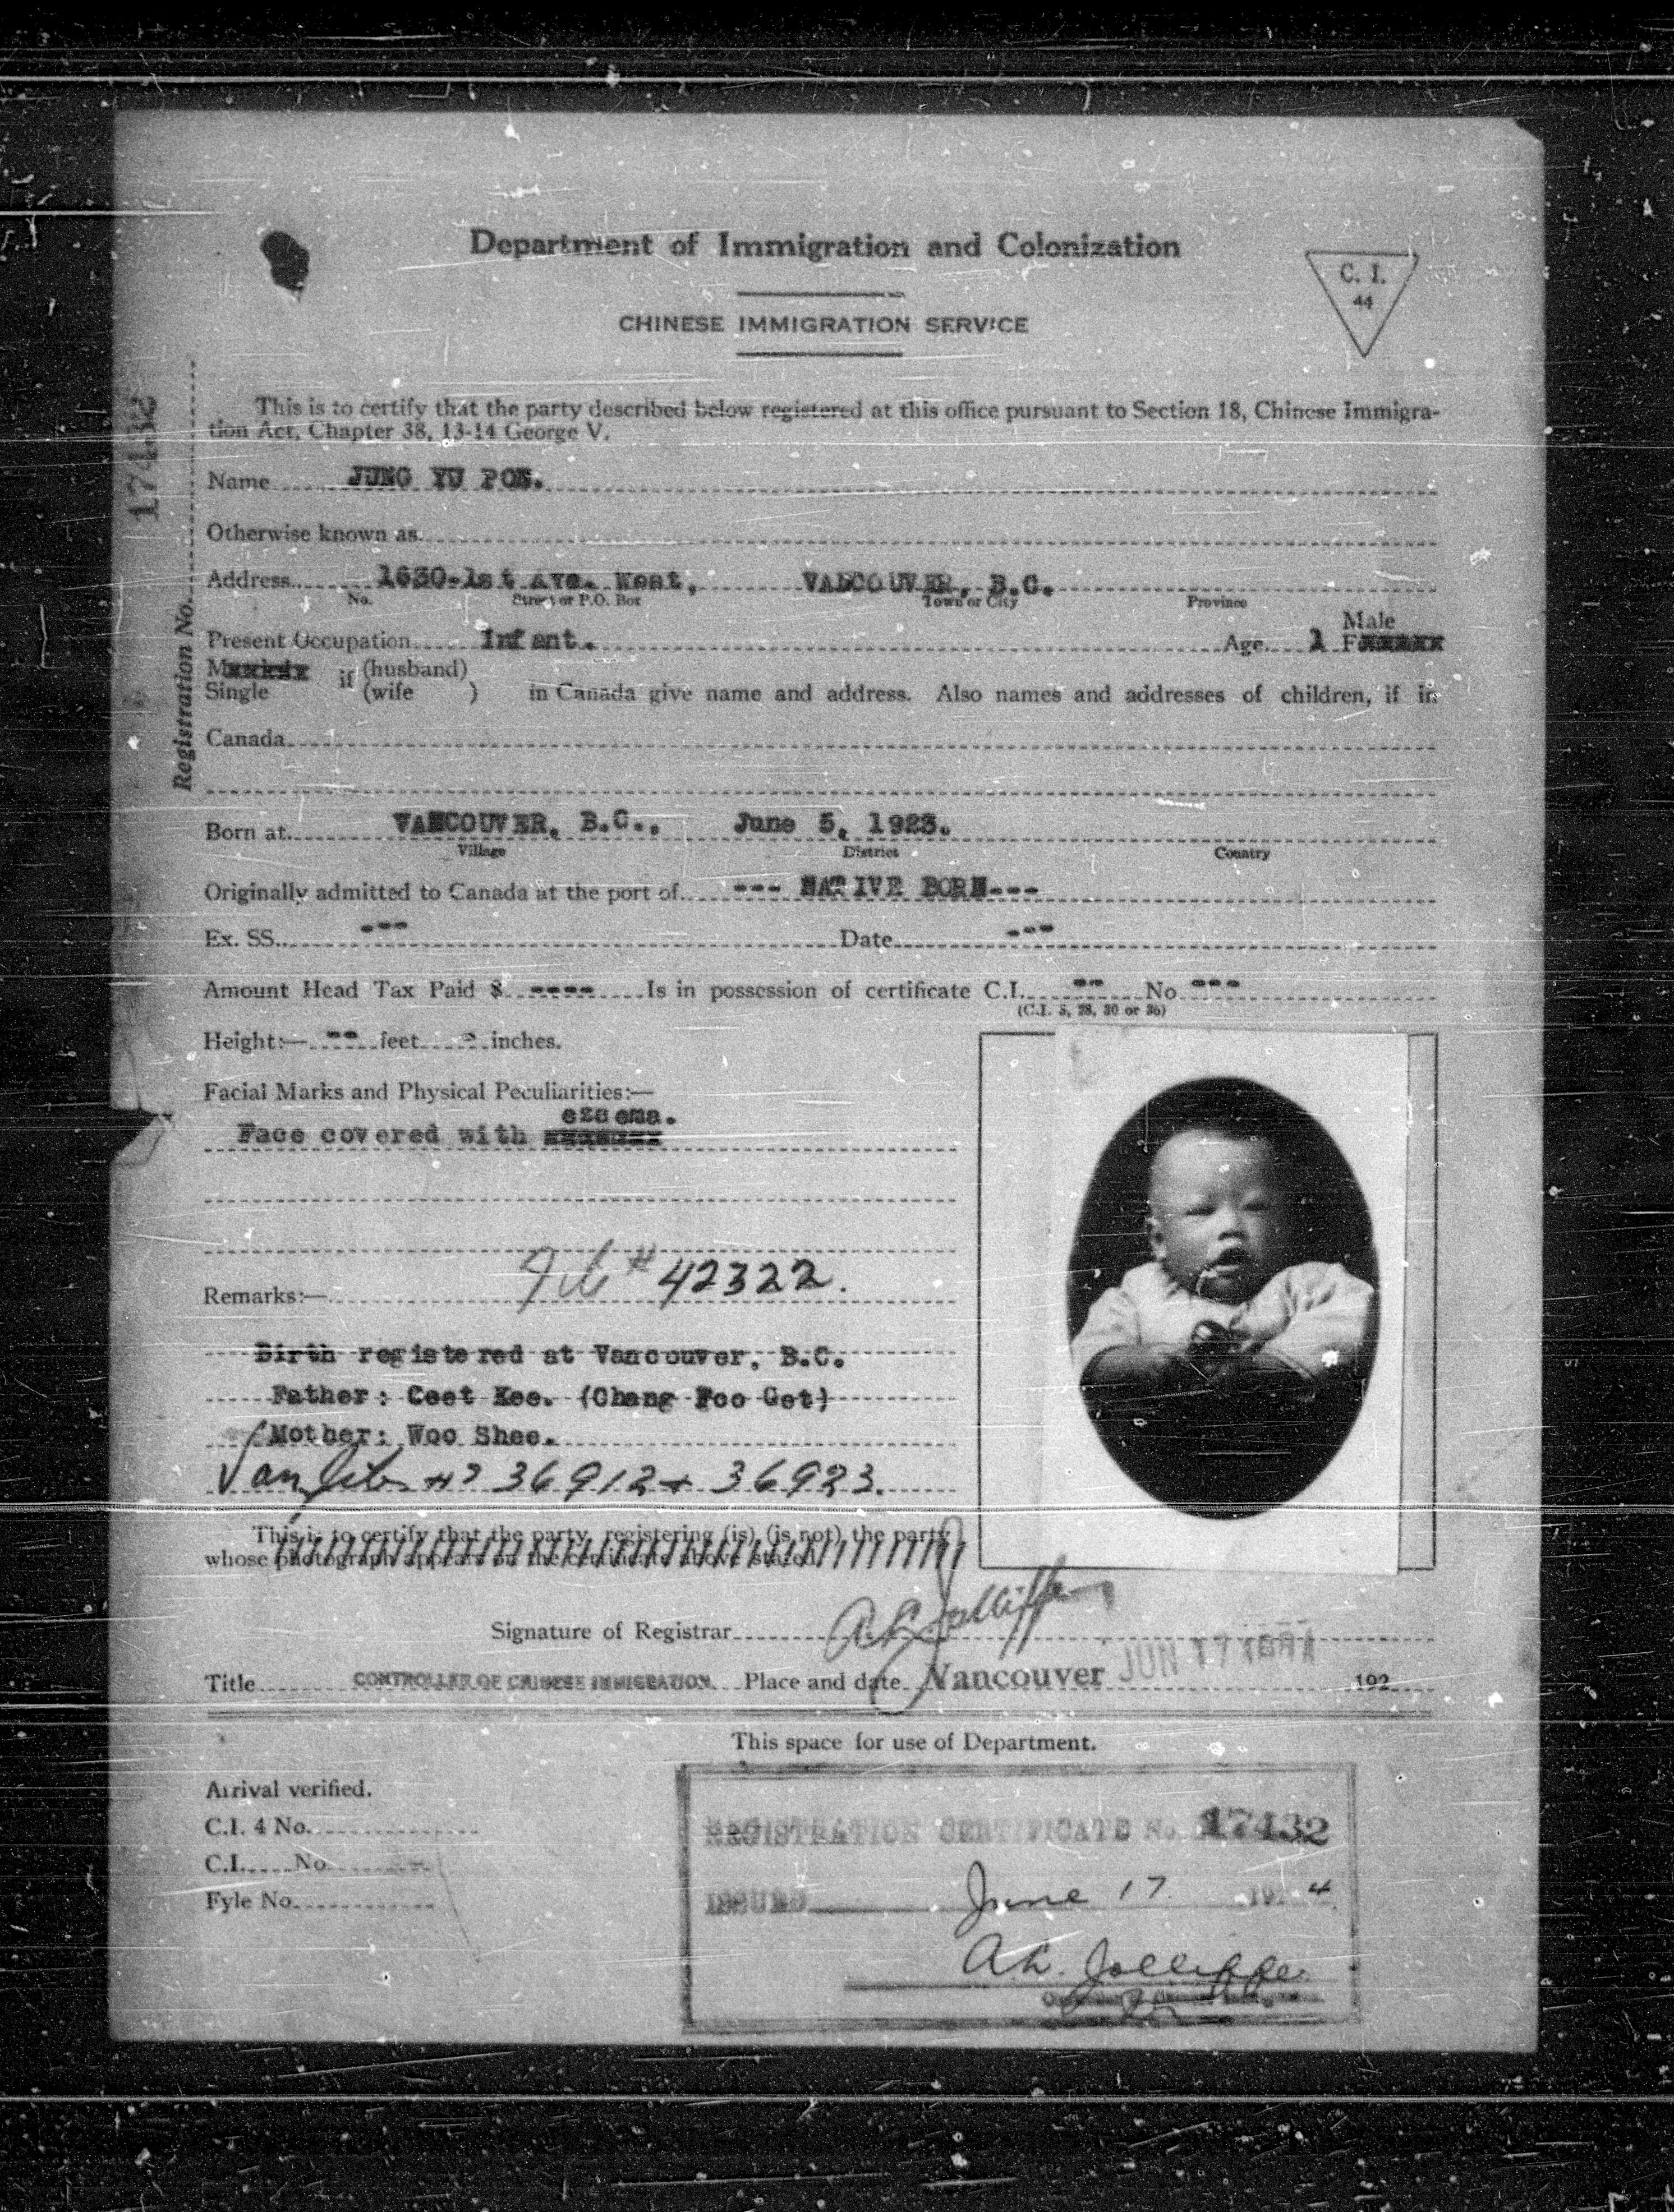 Department of Immigration and Colonization
C. I.
44
CHINESE IMMIGRATION SERVICE
Registration No. 17432
This is to certify that the party described below registered at this office pursuant to Section 18, Chinese Immigra-
tion Act, Chapter 38, 13-14 George V.
Name JUNG YU PON.
Otherwise known as
Address 1630-1st Ave. West, VANCOUVER, B.C.
No. Street or P.O. Box Town or City Province
Male
Present Occupation Infant. Age 1 F
M if (husband)
Single (wife ) in Canada give name and address. Also names and addresses of children, if in
Canada
Born at VANCOUVER, B.C., June 5, 1923.
Village District Country
Originally admitted to Canada at the port of --- NATIVE BORN---
Ex. SS. --- Date ---
Amount Head Tax Paid $ ---- Is in possession of certificate C.I. -- No ---
(C.I. 5, 28, 30 or 36)
Height:— -- feet - inches.
Facial Marks and Physical Peculiarities:—
eczema.
Face covered with
Remarks:— File # 42322.
Birth registered at Vancouver, B.C.
Father: Ceet Kee. (Chang Foo Get)
Mother: Woo Shee.
Van file #s 36912 + 36923.
This is to certify that the party registering (is) (is not) the party
whose photograph appears on the certificate above stated.
Signature of Registrar A.L. Jolliffe
Title CONTROLLER OF CHINESE IMMIGRATION Place and date Vancouver JUN 17 1924 192
This space for use of Department.
Arrival verified.
C.I. 4 No.
C.I. No
Fyle No.
REGISTRATION CERTIFICATE No. 17432
ISSUED June 17 192 4
A.L. Jolliffe